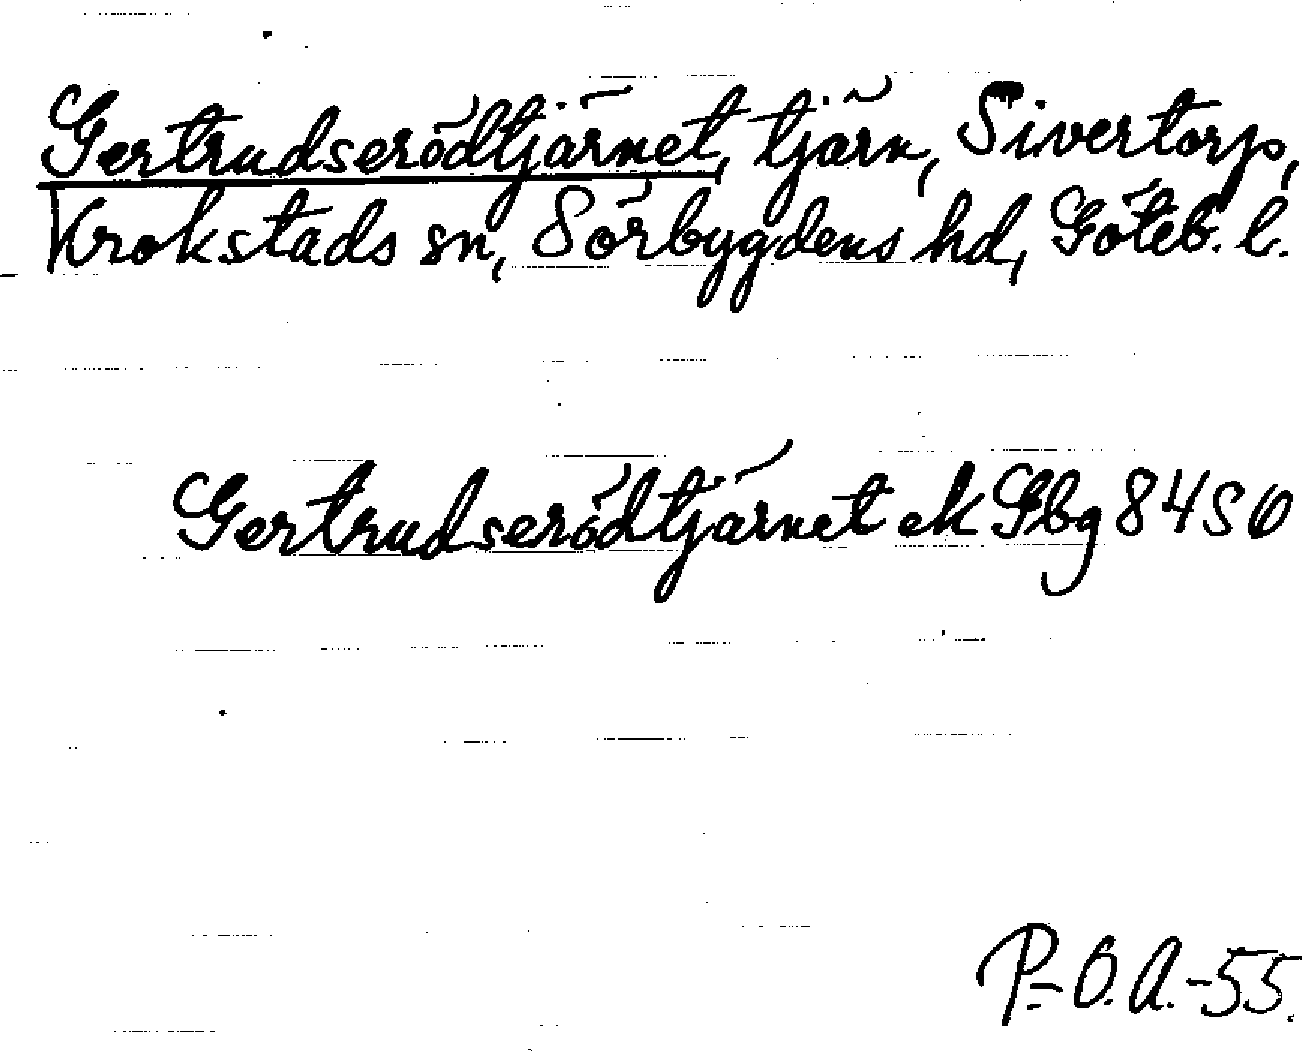 Gertrudserödtjärnet, tjärn, Sivertorp,
Krokstads sn, Sörbygdens hd, Göteb. l.
Gertrudserödtjärnet ek Gbg 84 S O
P-O.A.-55.